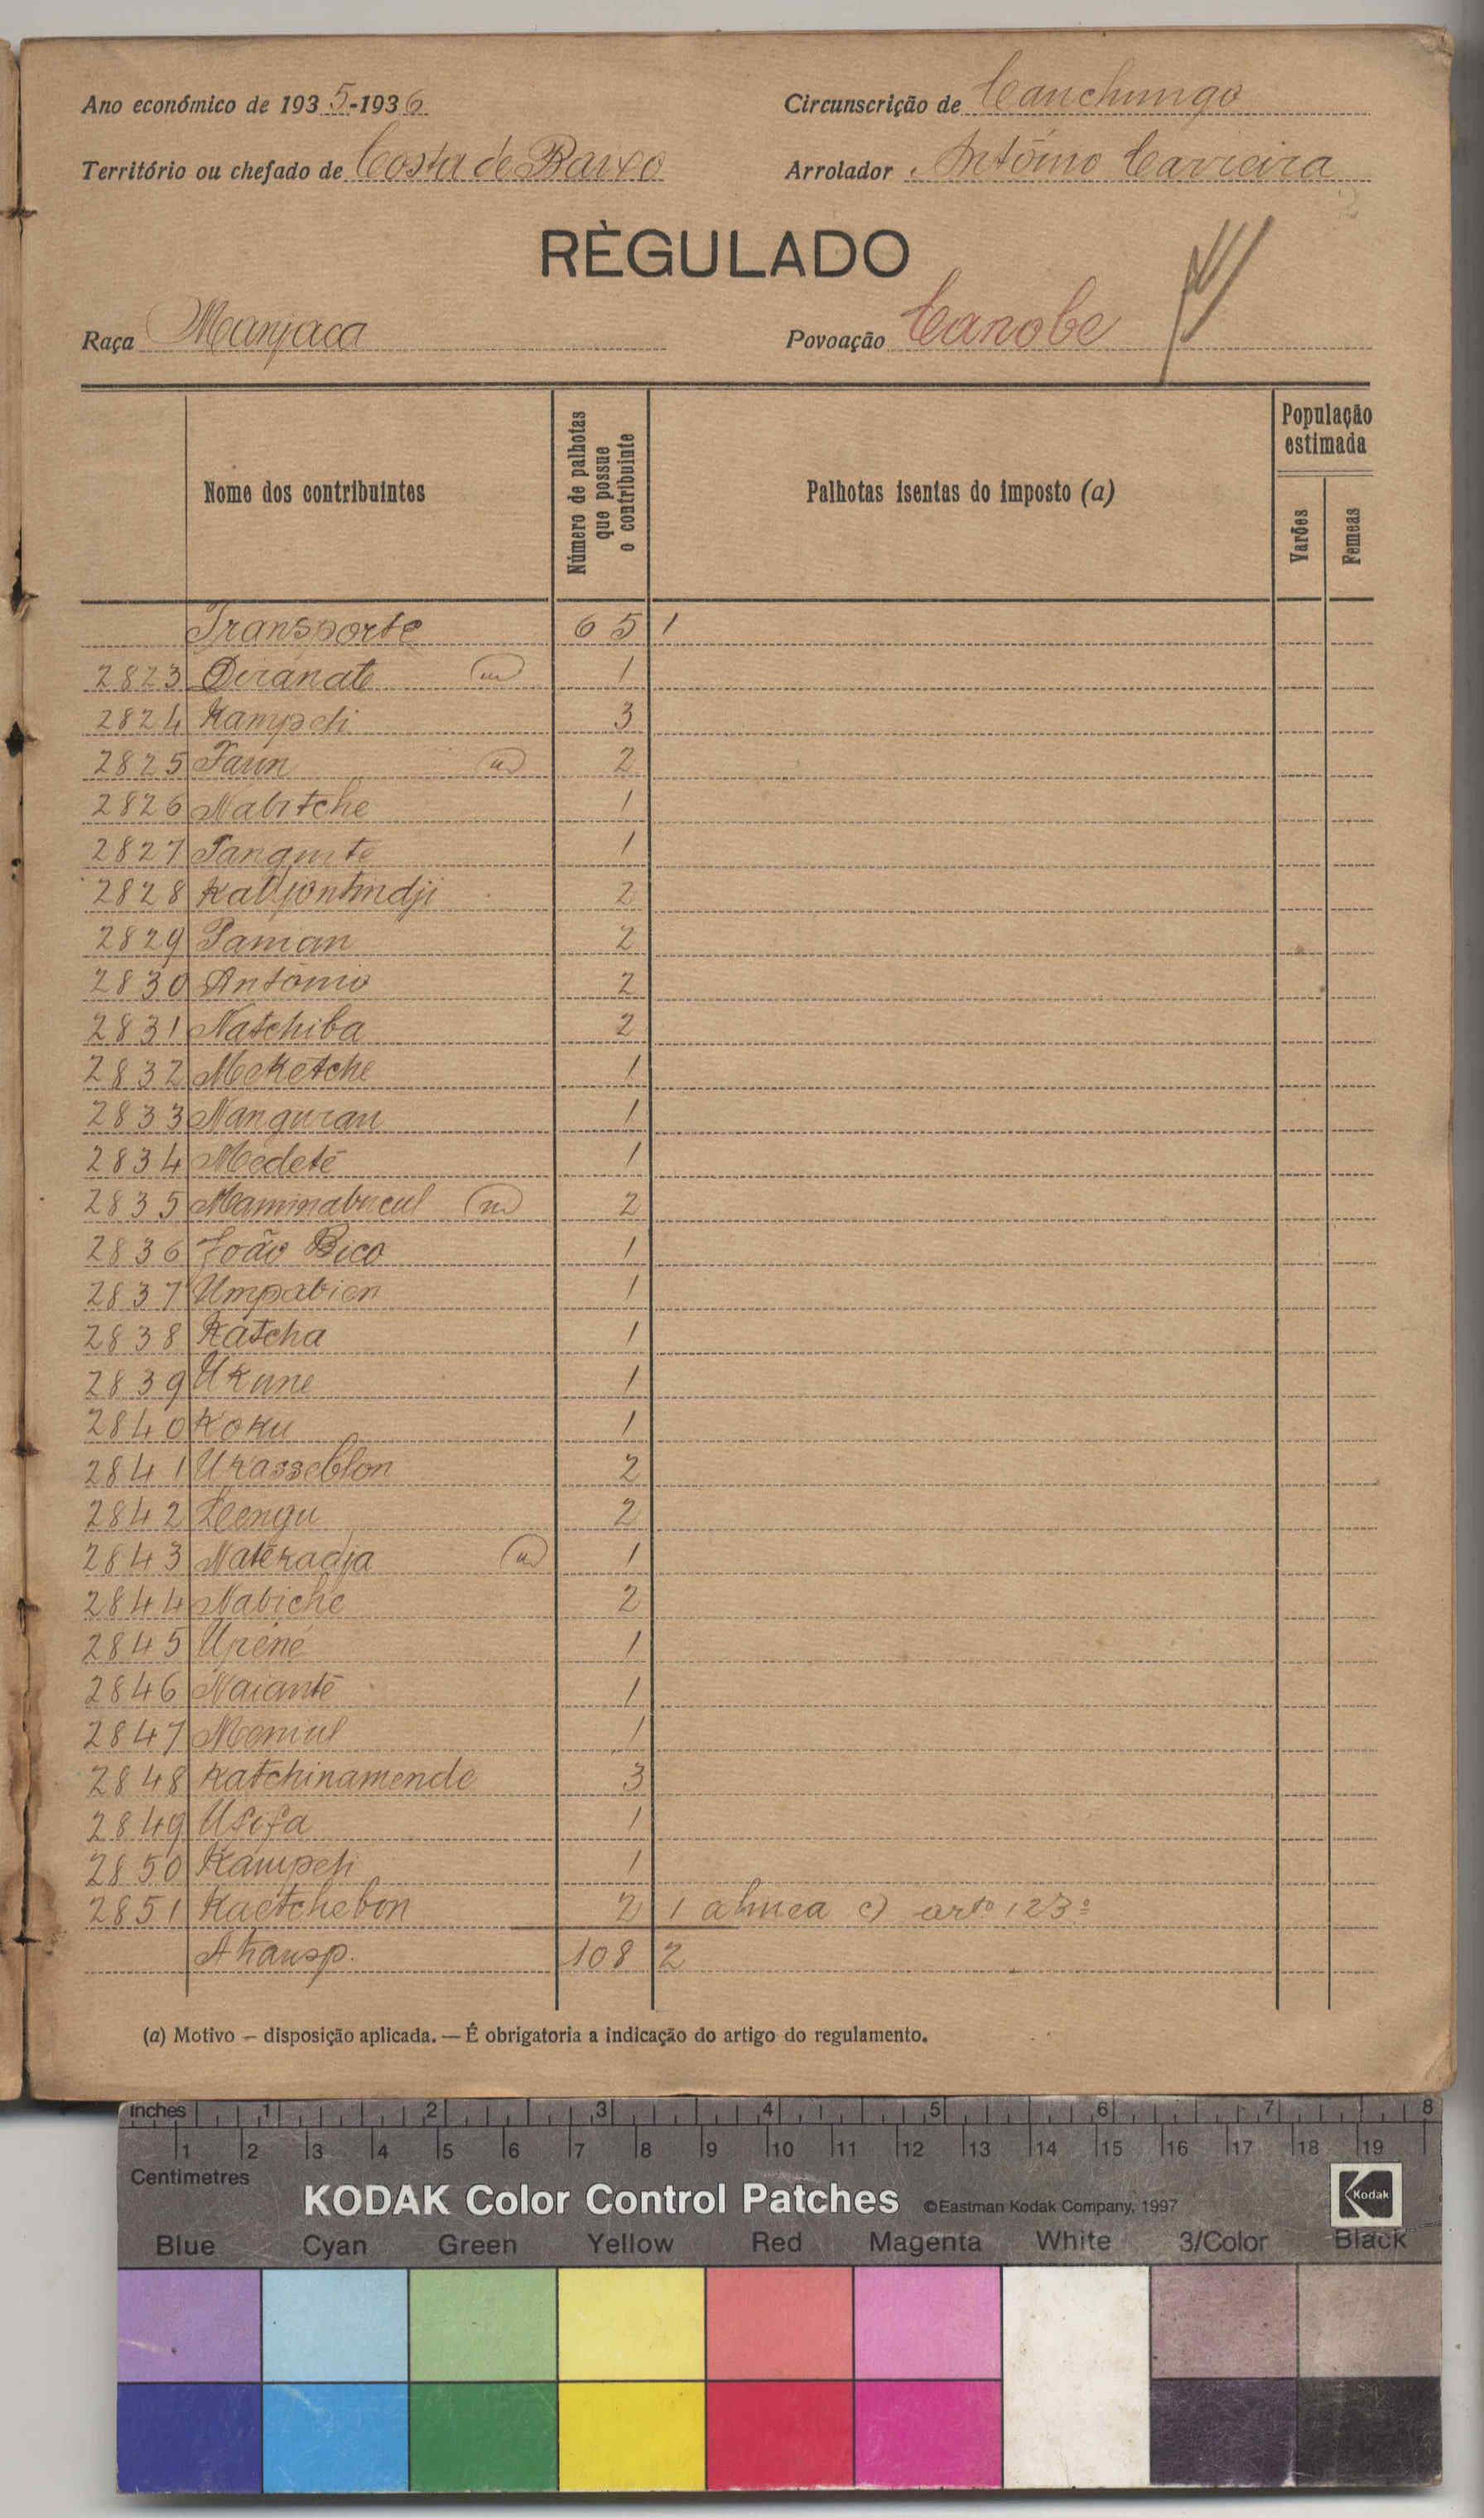 Ano económico de 1935-1936
Circunscrição de Canchungo
Território ou chefado de Costa de Baixo
Arrolador António Carreira
RÈGULADO
Raça Manjaca
Povoação Canobe
Nome dos contribuintes
Número de palhotas que possue o contribuinte
Palhotas isentas do imposto (a)
População estimada
Varões
Femeas
Transporte 65 1
2823 Diranate 1
2824 Kampeli 3
2825 Faun 2
2826 Nabitche 1
2827 Tanguite 1
2828 2
2829 Paman 2
2830 António 2
2831 Natchiba 2
2832 Meketche 1
2833 Nanguran 1
2834 Medeté 1
2835 Maminabucul 2
2836 João Bico 1
2837 Umpabien 1
2838 Katcha 1
2839 Ukune 1
2840 Koku 1
2841 Ukasseblon 2
2842 Lengu 2
2843 Natékadja 1
2844 Nabiche 2
2845 Upéné 1
2846 Naianté 1
2847 Meniul 1
2848 Katchinamende 3
2849 Usifa 1
2850 Kampeli 1
2851 Kaetchebon 2 1 alinea c) artº 123º
A transp. 108 2
(a) Motivo — disposição aplicada. — É obrigatoria a indicação do artigo do regulamento.
inches 1 2 3 4 5 6 7 8
1 2 3 4 5 6 7 8 9 10 11 12 13 14 15 16 17 18 19
Centimetres
KODAK Color Control Patches ©Eastman Kodak Company, 1997 Kodak
Blue Cyan Green Yellow Red Magenta White 3/Color Black